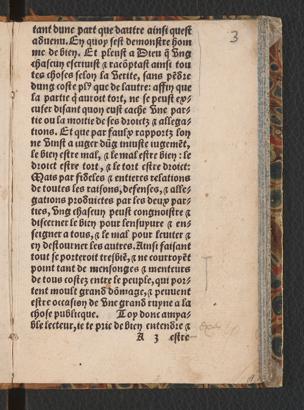 3
tant dune part que dautre ainsi quest
aduenu. En quoy sest demonstre hom
me de bien. Et pleust a Dieu q̃ vng
chascun escruist & racõptast ainsi tout
tes choses selon la verite, sans pẽdre
dung coste pl9 que de lautre: affin que
la partie q̃ auroit tort, ne se peust ex
cuser disant quoy eust cache vne par-
tie ou la moitie de ses droictz & allega-
tions. Et que par faulx rapportz lon
ne vinst a iuger dũg iniuste iugemẽt,
le bien estre mal, & le mal estre bien: le
droict estre tort, & le tort estre droict:
Mais par fideles & entieres relations
de toutes les raisons, defenses, & alle-
gations produictes par les deux par-
ties, vng chascun peust congnoistre &
discerner le bien pour lensuyure & en-
seigner a tous, & le mal pour leuiter &
en destourner les autres. Ainsi faisant
tout se porteroit tresbiẽ, & ne courroyẽt
point tant de mensonges & menteurs
de tous costez entre le peuple, qui por-
tent moult grand dõmage, & peuuent
estre occasion de vne grand ruyne a la
chose publicque. Toy donc ampa-
ble lecteur, ie te prie de bien entendre &
A 3 estre